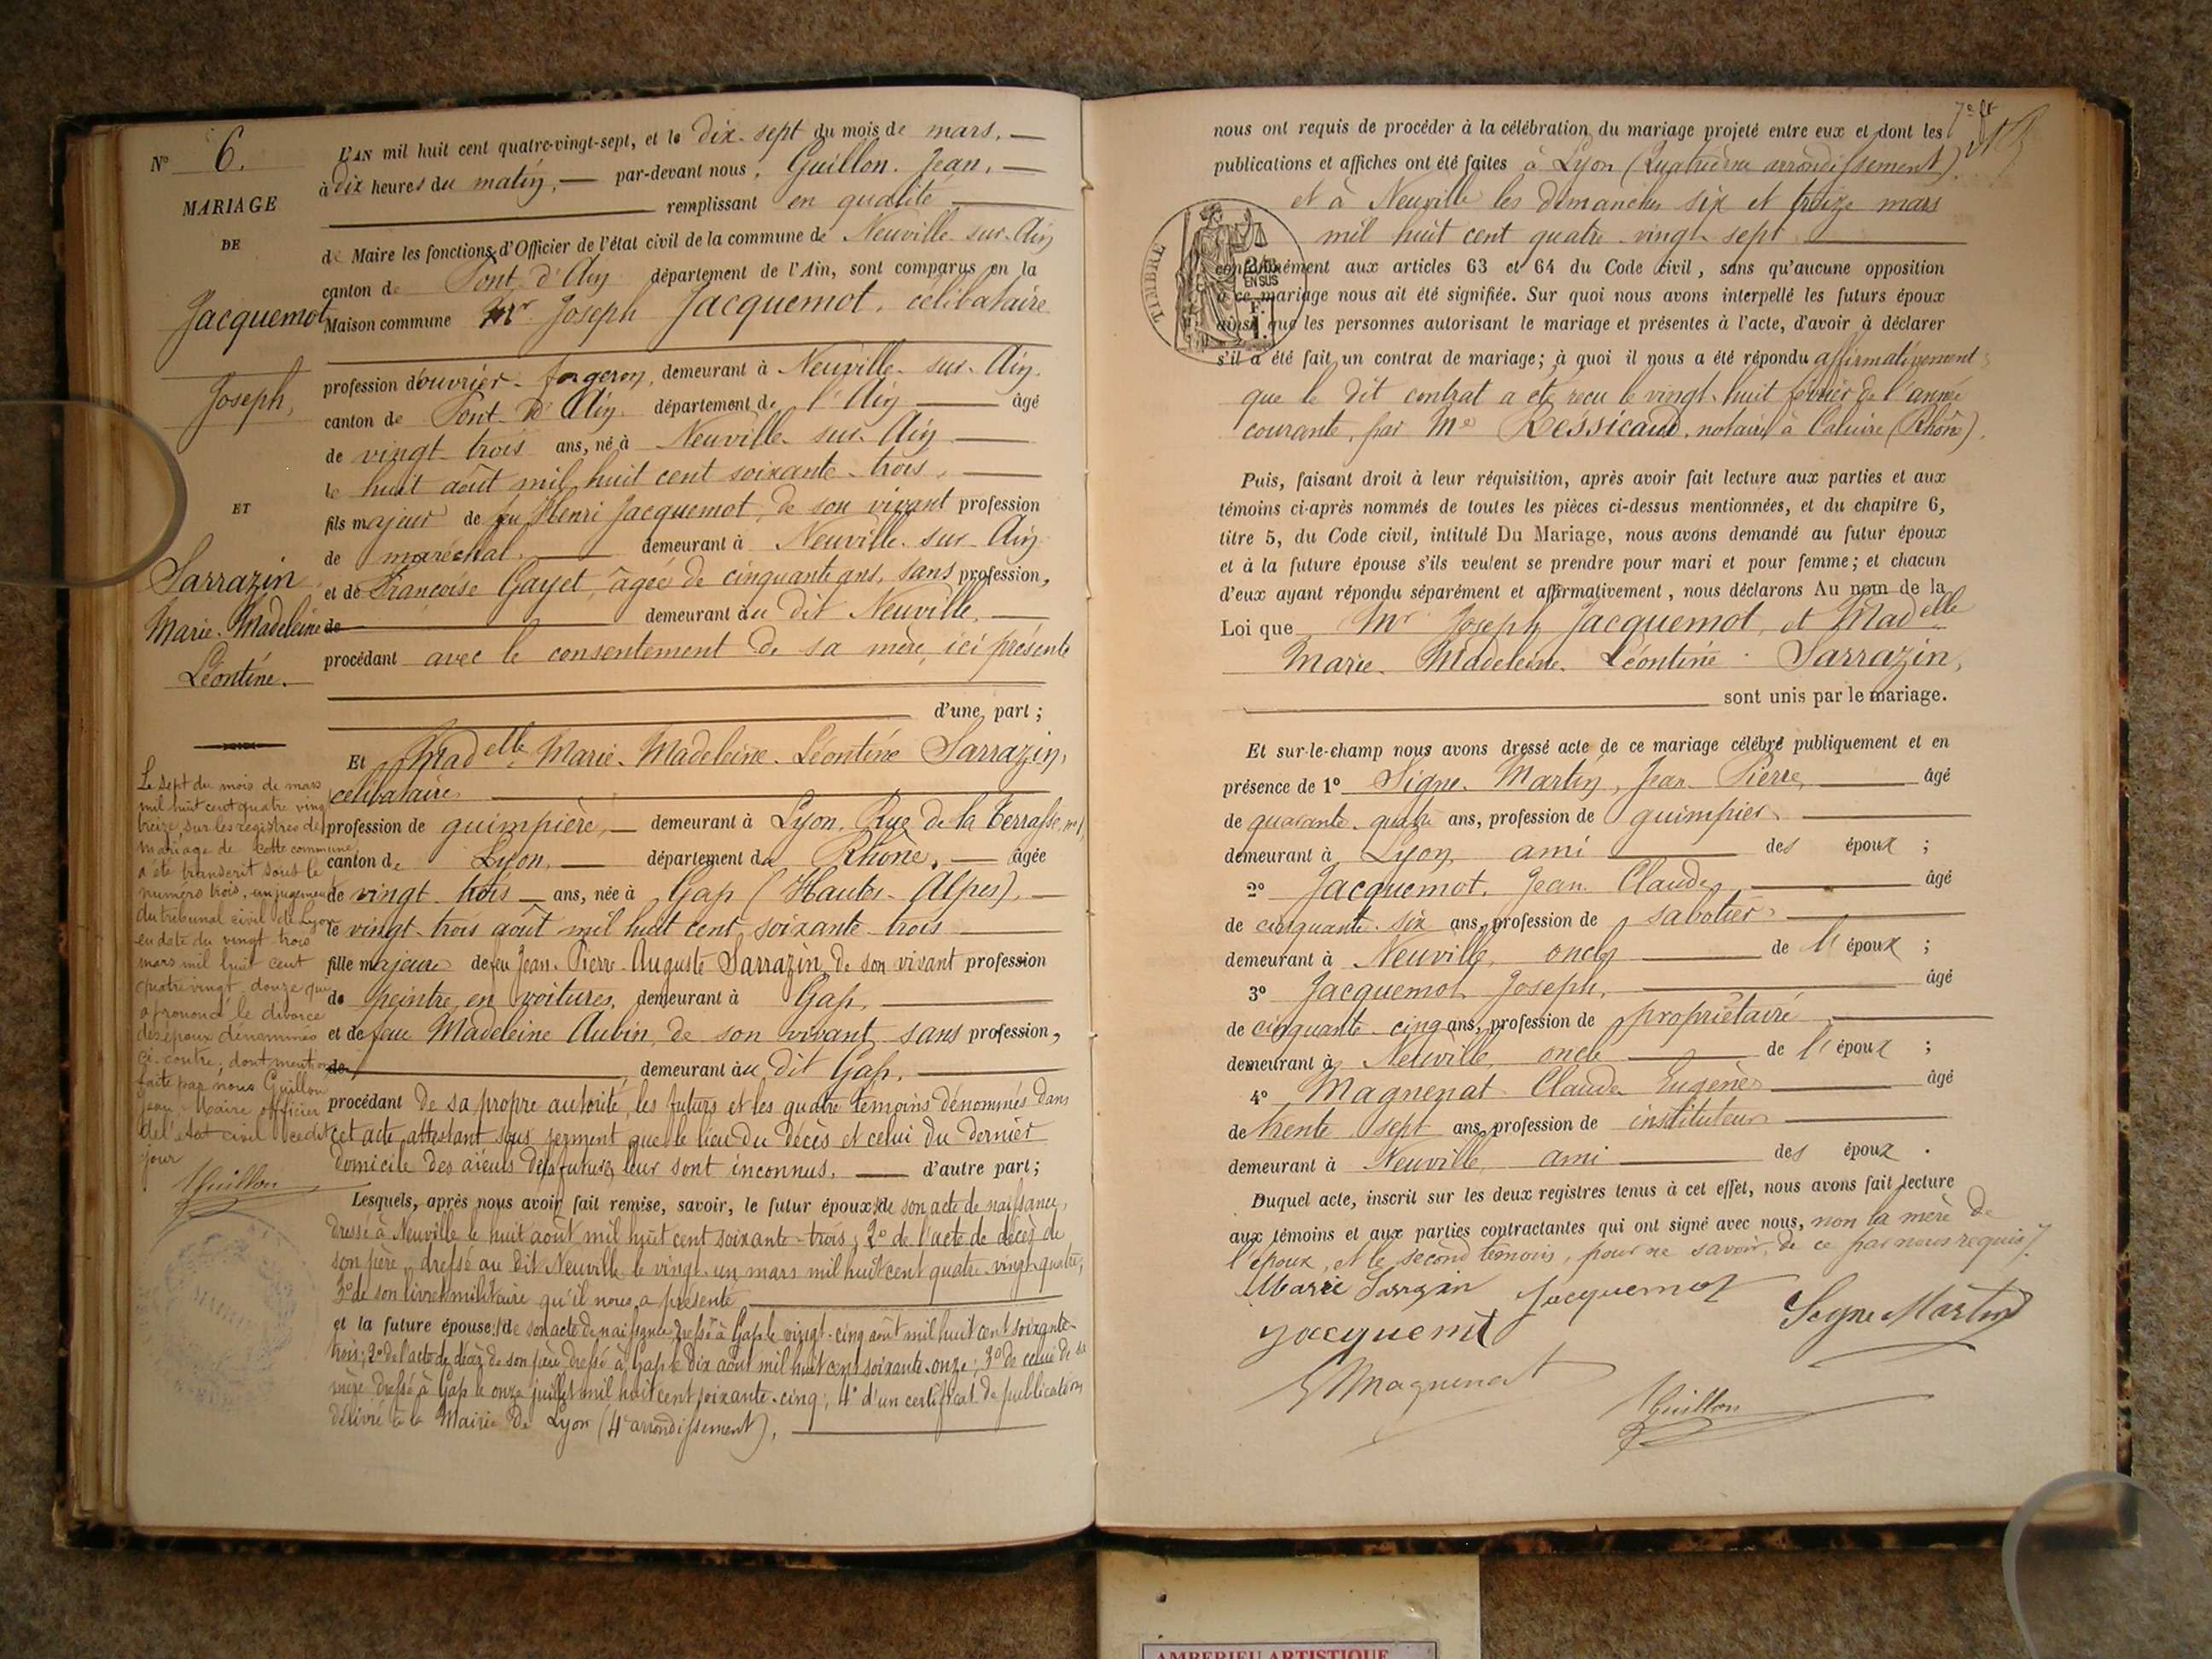 N° 6.
MARIAGE
DE
Jacquemot
Joseph,
ET
Sarrazin
Marie-Madeleine
Léontine.
Le sept du mois de mars
mil huit cent quatre vingt
treize, sur les registres de
mariage de cette commune
a été transcrit sous le
numéro trois, un jugement
du tribunal civil de Lyon
en date du vingt trois
mars mil huit cent
quatre vingt douze qui
a prononcé le divorce
des époux dénommés
ci-contre, dont mention
faite par nous Guillon
Jean Maire officier
de l'état civil cedit
jour
Guillon
L'AN mil huit cent quatre-vingt-sept, et le dix-sept du mois de mars,
à dix heures du matin, par-devant nous, Guillon Jean,
remplissant en qualité
de Maire les fonctions d'Officier de l'état civil de la commune de Neuville-sur-Ain
canton de Pont-d'Ain département de l'Ain, sont comparus en la
Maison commune Mr Joseph Jacquemot, célibataire
profession d'ouvrier-forgeron, demeurant à Neuville-sur-Ain.
canton de Pont-d'Ain département de l'Ain âgé
de vingt-trois ans, né à Neuville-sur-Ain
le huit août mil huit cent soixante-trois,
fils majeur de feu Henri Jacquemot, de son vivant profession
de maréchal, demeurant à Neuville-sur-Ain
et de Françoise Gayet, âgée de cinquante ans, sans profession,
de demeurant au dit Neuville,
procédant avec le consentement de sa mère, ici présente
d'une part ;
Et Madelle Marie-Madeleine-Léontine Sarrazin,
célibataire
profession de guimpière, demeurant à Lyon, Rue de la Terrasse, n° 1,
canton de Lyon, département du Rhône, âgée
de vingt-trois ans, née à Gap (Hautes-Alpes),
le vingt-trois août mil huit cent soixante-trois
fille majeure de feu Jean-Pierre-Auguste Sarrazin, de son vivant profession
de peintre en voitures, demeurant à Gap,
et de feue Madeleine Aubin, de son vivant sans profession,
de demeurant au dit Gap,
procédant de sa propre autorité, les futurs et les quatre témoins dénommés dans
cet acte attestant sous serment que le lieu du décès et celui du dernier
domicile des aïeuls de la future leur sont inconnus. d'autre part ;
Lesquels, après nous avoir fait remise, savoir, le futur époux : 1° de son acte de naissance,
dressé à Neuville le huit août mil huit cent soixante-trois ; 2° de l'acte de décès de
son père, dressé au dit Neuville le vingt-un mars mil huit cent quatre-vingt-quatre,
3° de son livret militaire qu'il nous a présenté
et la future épouse : 1° de son acte de naissance dressé à Gap le vingt-cinq août mil huit cent soixante-
trois ; 2° de l'acte de décès de son père dressé à Gap le dix août mil huit cent soixante-onze ; 3° de celui de sa
mère dressé à Gap le onze juillet mil huit cent soixante-cinq ; 4° d'un certificat de publication
délivré à la Mairie de Lyon (4e arrondissement),
nous ont requis de procéder à la célébration du mariage projeté entre eux et dont les
publications et affiches ont été faites à Lyon (Quatrième arrondissement)
et à Neuville les dimanches six et treize mars
mil huit cent quatre-vingt-sept
TIMBRE
EN SUS
conformément aux articles 63 et 64 du Code civil, sans qu'aucune opposition
à ce mariage nous ait été signifiée. Sur quoi nous avons interpellé les futurs époux
ainsi que les personnes autorisant le mariage et présentes à l'acte, d'avoir à déclarer
s'il a été fait un contrat de mariage ; à quoi il nous a été répondu affirmativement
que le dit contrat a été reçu le vingt-huit février de l'année
courante, par Me Ressicaud, notaire à Caluire (Rhône).
Puis, faisant droit à leur réquisition, après avoir fait lecture aux parties et aux
témoins ci-après nommés de toutes les pièces ci-dessus mentionnées, et du chapitre 6,
titre 5, du Code civil, intitulé Du Mariage, nous avons demandé au futur époux
et à la future épouse s'ils veulent se prendre pour mari et pour femme ; et chacun
d'eux ayant répondu séparément et affirmativement, nous déclarons Au nom de la
Loi que Mr Joseph Jacquemot, et Madelle
Marie-Madeleine-Léontine Sarrazin,
sont unis par le mariage.
Et sur-le-champ nous avons dressé acte de ce mariage célébré publiquement et en
présence de 1° Signe-Martin, Jean-Pierre, âgé
de quarante-quatre ans, profession de guimpier
demeurant à Lyon, ami des époux ;
2° Jacquemot, Jean-Claude, âgé
de cinquante-six ans, profession de sabotier
demeurant à Neuville, oncle de l'époux ;
3° Jacquemot, Joseph, âgé
de cinquante-cinq ans, profession de propriétaire
demeurant à Neuville, oncle de l'époux ;
4° Magnenat Claude Eugène âgé
de trente-sept ans, profession de instituteur
demeurant à Neuville, ami des époux.
Duquel acte, inscrit sur les deux registres tenus à cet effet, nous avons fait lecture
aux témoins et aux parties contractantes qui ont signé avec nous, non la mère de
l'époux, et le second témoin, pour ne savoir, de ce par nous requis.
Marie Sarrazin Jacquemot
Jacquemot Signe Martin
Magnenat
Guillon
AMBERIEU ARTISTIQUE